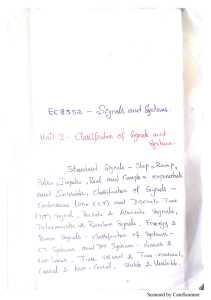 EC8352 – Signals and Systems.
Unit I – Classification of Signals and
Systems.
Standard Signals – Step, Ramp,
Pulse, Impulse, Real and Complex exponentials
and Sinusoids. Classification of Signals –
Continuous time (CT) and Discrete Time
(DT) signal, Periodic & Aperiodic Signals,
Deterministic & Random Signals, Energy &
Power Signals – classification of Systems –
CT Systems and DT Systems – Linear &
Non linear, Time Variant & Time-invariant,
Causal & Non-Causal, Stable & Unstable.
Scanned by CamScanner